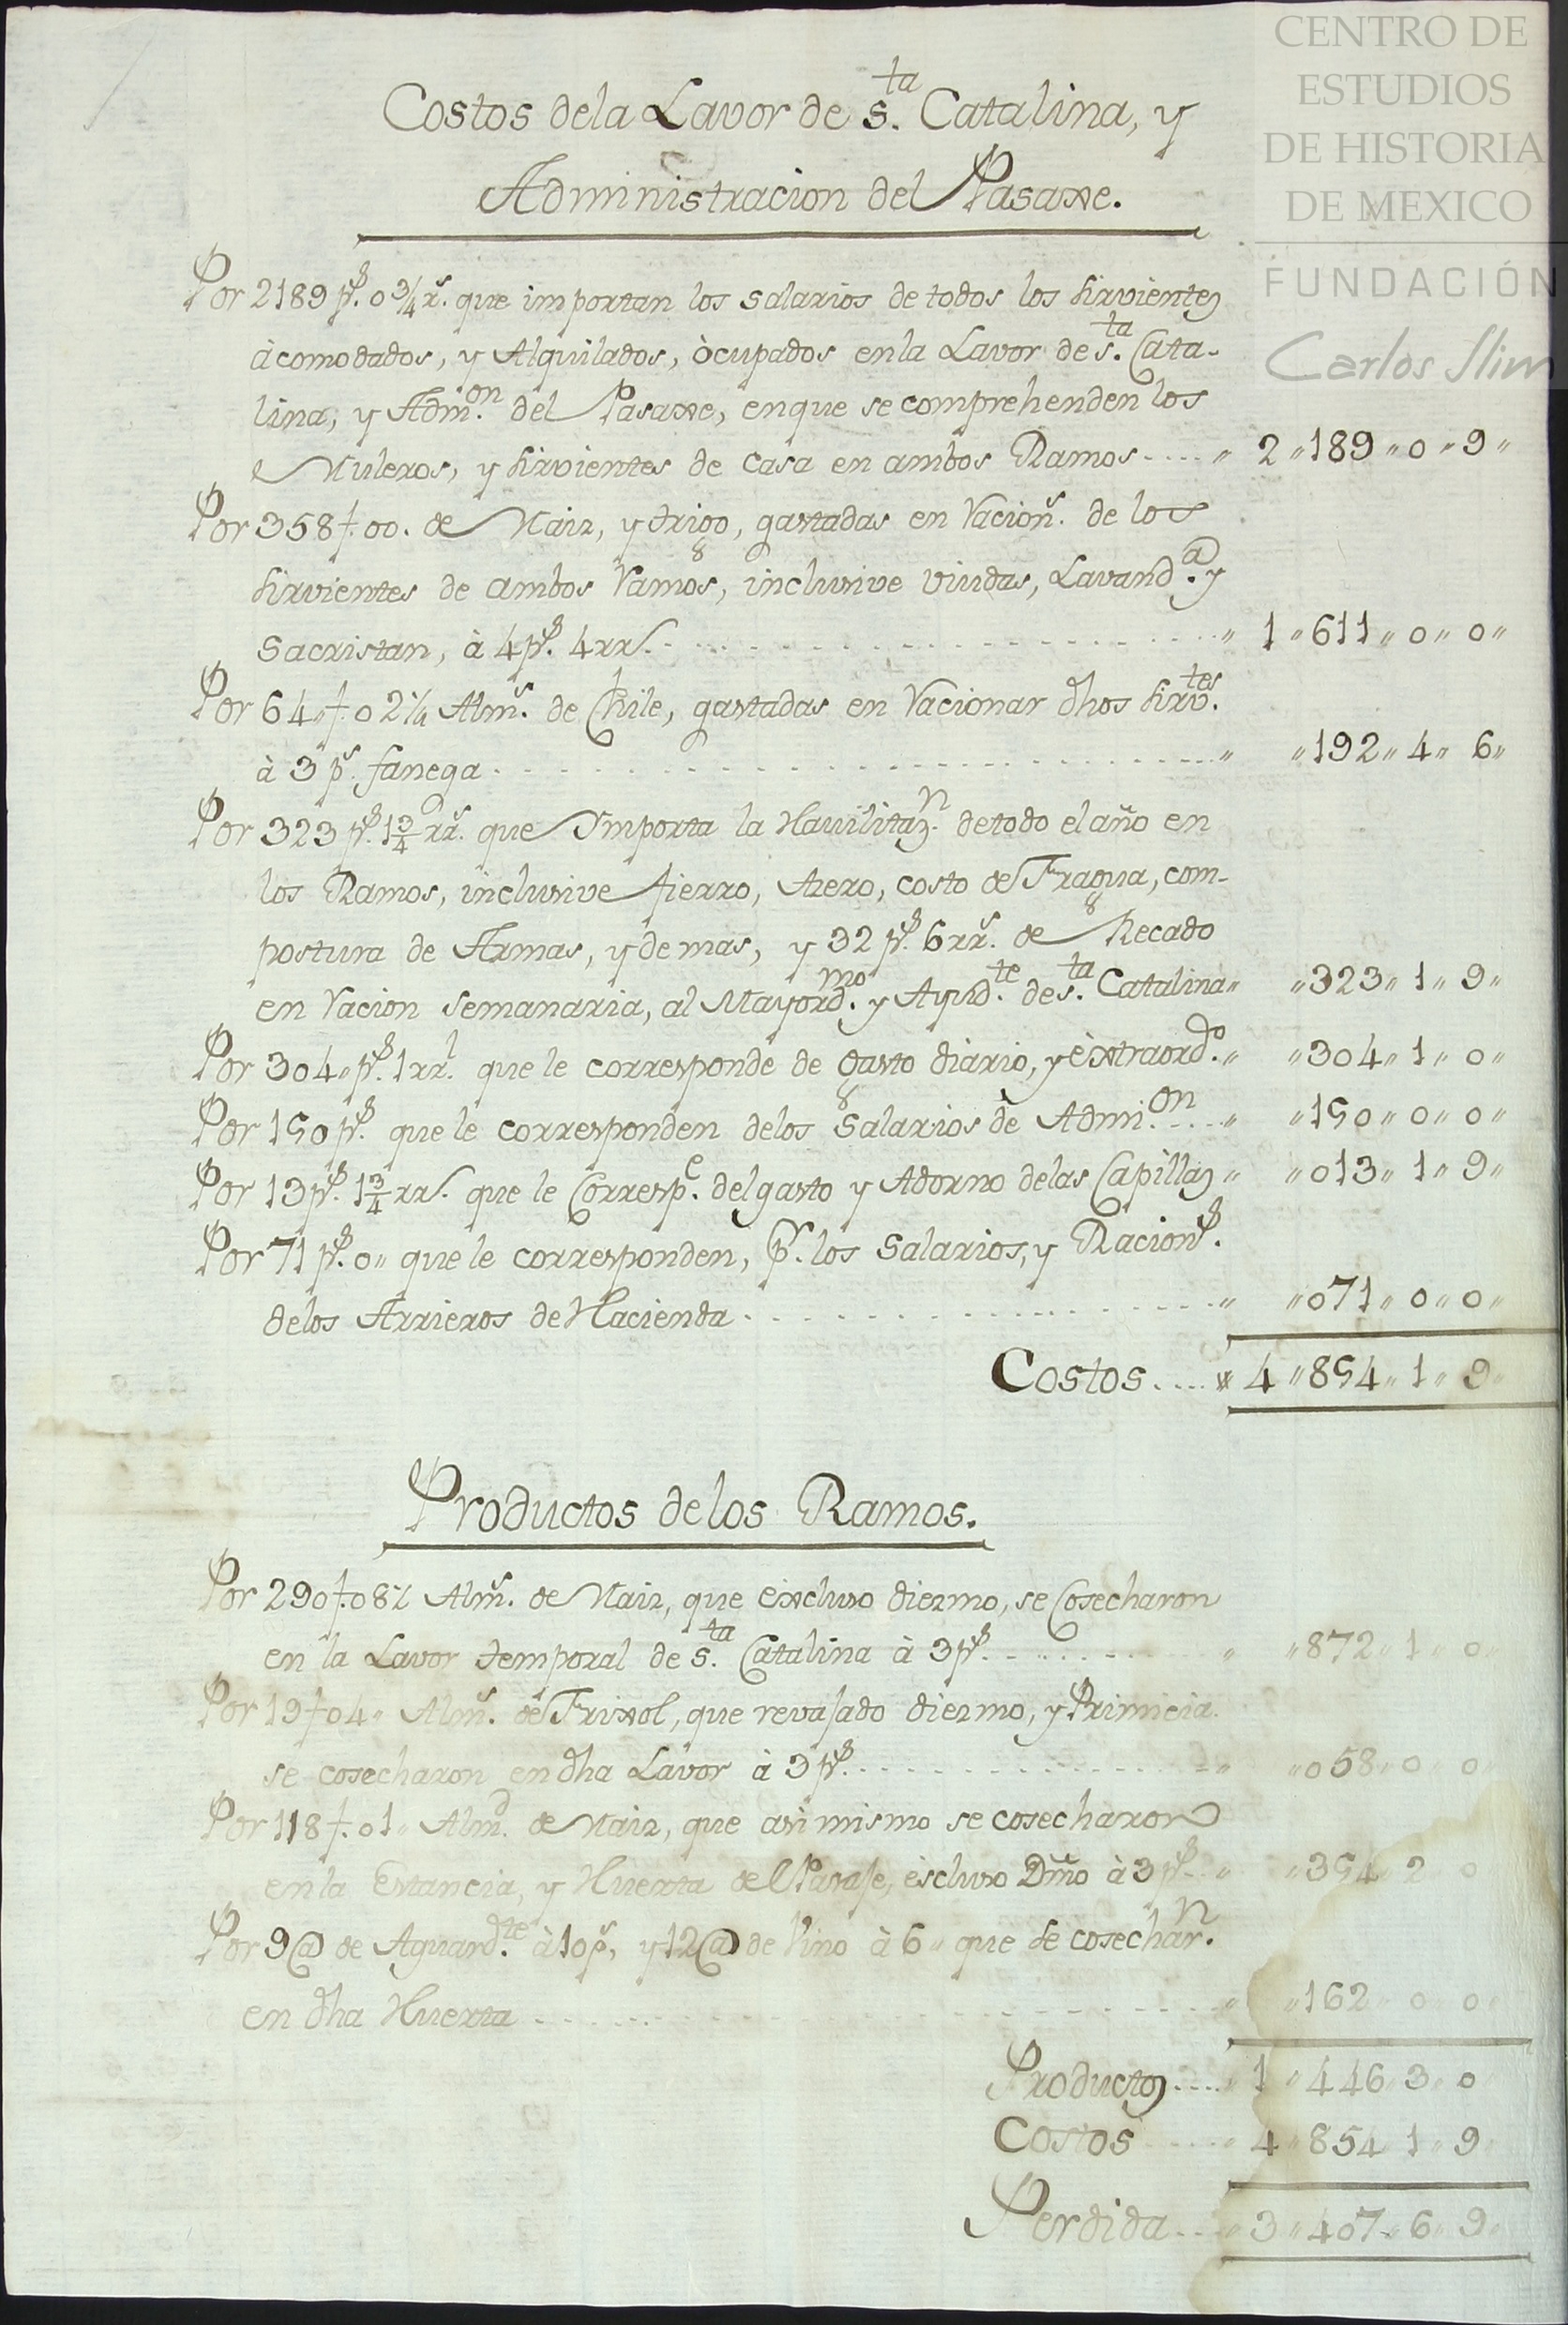 CENTRO DE
ESTUDIOS
DE HISTORIA
DE MEXICO
FUNDACIÓN
Carlos Slim
Costos dela Lavor de S.ta Catalina, y
Administracion del Pasaxe.
Por 2189 ps. 0 3/4 rs. que importan los salarios de todos los sirvientes
àcomodados, y Alquilados, òcupados enla Lavor de S.ta Cata-
lina, y Adm.on del Pasaxe, enque se comprehenden los
Muleros, y sirvientes de casa en ambos Ramos.... " 2 " 189 " 0 " 9 "
Por 358 f. 00. de Maiz, y trigo, gastadas en racions. de los
sirvientes de ambos ramos, inclusive viudas, Lavand.a y
Sacristan, à 4 ps. 4 rrs. " 1 " 611 " 0 " 0 "
Por 64 " f. 0 2 1/4 Alms. de Chile, gastadas en racionar dhos sirv.tes
à 3 ps. fanega " " 192 " 4 " 6 "
Por 323 ps. 1 3/4 rrs. que Importa la Havilitaz.n detodo el año en
los Ramos, inclusive fierro, Azero, costo de Fragua, com-
postura de Armas, y demas, y 32 ps. 6 rrs. de Recado
en racion semanaria, al Mayord.mo y Ayud.te de S.ta Catalina " " 323 " 1 " 9 "
Por 304 " ps. 1 rrl. que le corresponde de gasto diario, y èxtraord.o " " 304 " 1 " 0 "
Por 150 ps. que le corresponden delos Salarios de Admi.on .... " " 150 " 0 " 0 "
Por 13 ps. 1 3/4 rrs. que le Corresp.e del gasto y Adorno delas Capillas " " 013 " 1 " 9 "
Por 71 ps. 0 " que le corresponden, pr. los Salarios, y Racions.
delos Arrieros de Hacienda " " 071 " 0 " 0 "
Costos.... " 4 " 854 " 1 " 9 "
Productos delos Ramos.
Por 290 f. 08 1/2 Alms. de Maiz, que excluso diezmo, se Cosecharon
en la Lavor temporal de S.ta Catalina à 3 ps. " " 872 " 1 " 0 "
Por 19 f. 04 " Alms. de Frixol, que revajado diezmo, y Primicia
se cosecharon en dha Lavor à 3 ps. " " 058 " 0 " 0 "
Por 118 f. 01 " Almd. de Maiz, que asi mismo se cosecharon
enla Estancia, y Huerta del Pasaje, èscluso Dmo à 3 ps. " " 354 " 2 " 0
Por 9 @ de Aguard.te à 10 ps, y 12 @ de Vino à 6 " que se cosechar.n
en dha Huerta " " 162 " 0 " 0 "
Productos.... " 1 " 446 " 3 " 0
Costos .... " 4 " 854 " 1 " 9 "
Perdida.... " 3 " 407 " 6 " 9 "